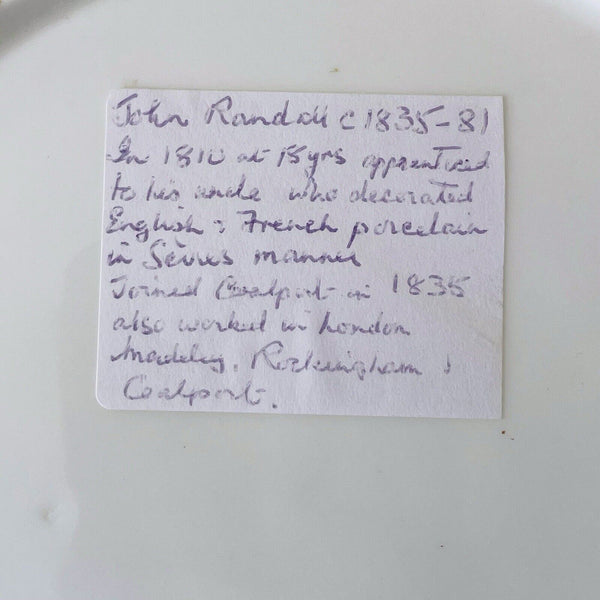 John Randall c 1835-81
In 1810 at 15yrs apprenticed
to his uncle who decorated
English & French porcelain
in Sèvres manner
Joined Coalport in 1835
also worked in London
Madeley, Rockingham &
Coalport.